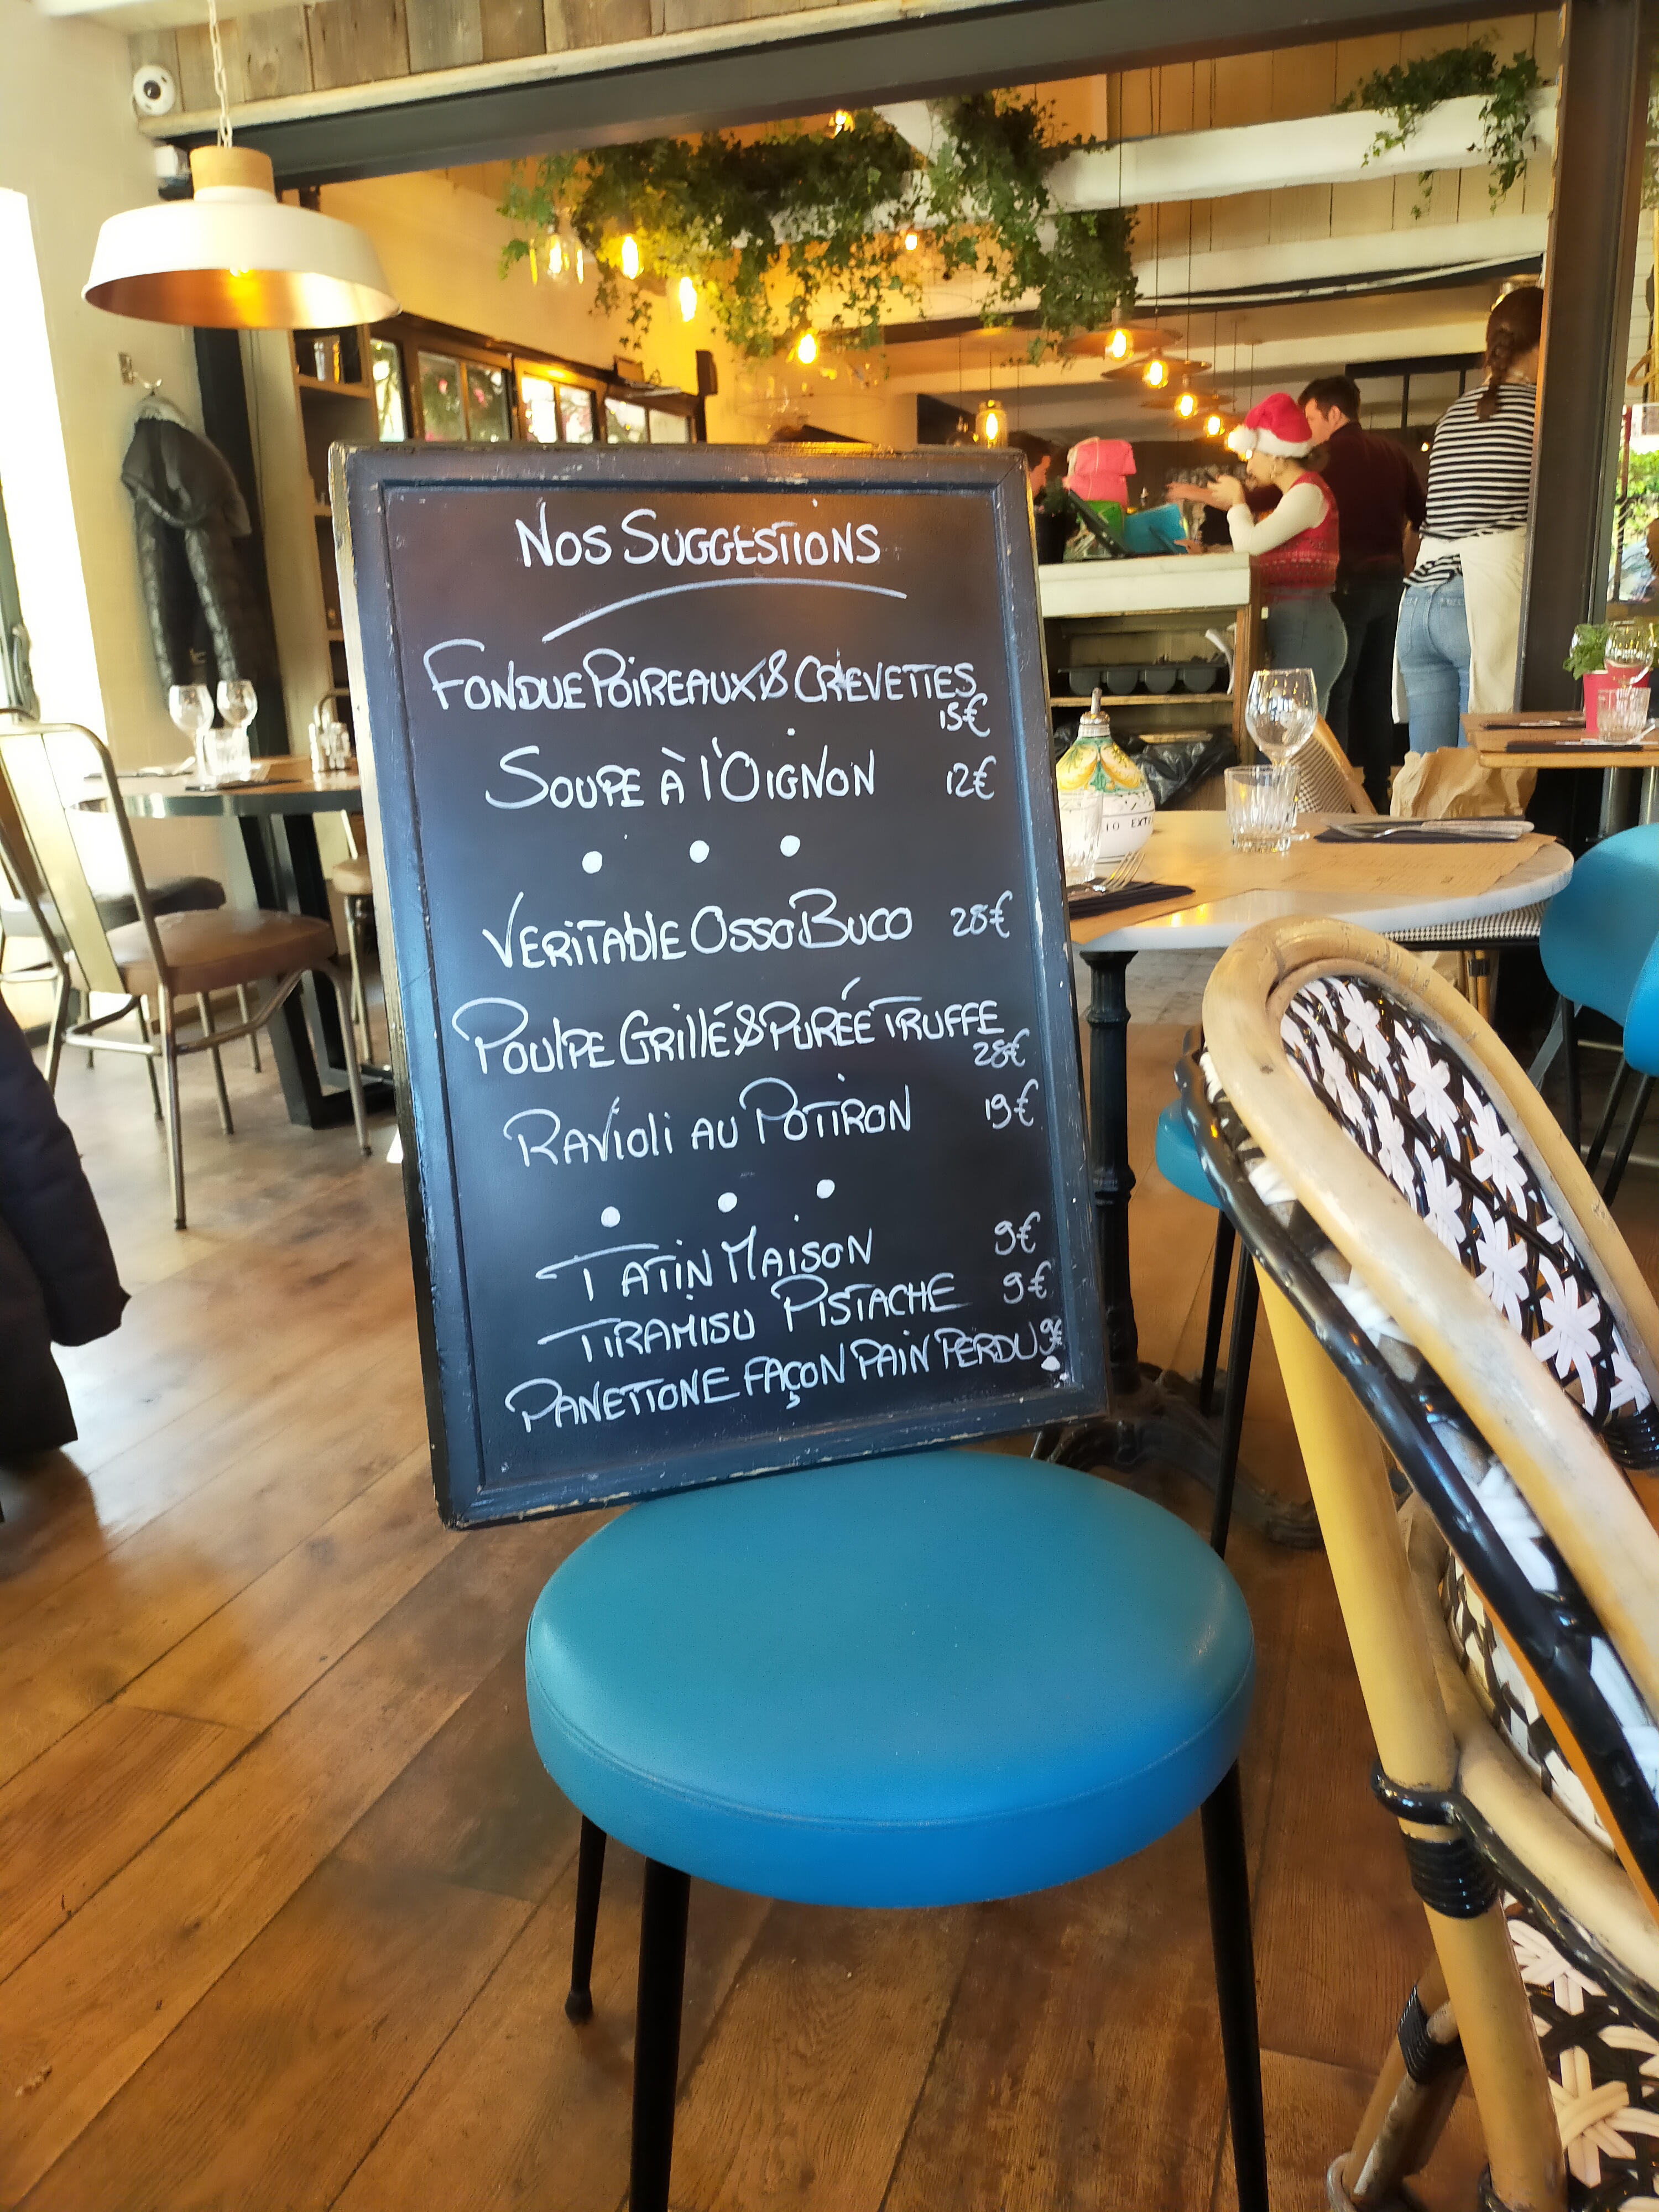 Nos Suggestions
Fondue Poireaux & Crevettes
15€
Soupe à l'Oignon 12€
Veritable Osso Buco 28€
Poulpe Grillé & Purée Truffe
28€
Ravioli au Potiron 19€
Tatin Maison 9€
Tiramisu Pistache 9€
Panettone façon Pain Perdu 9€
IO EXT